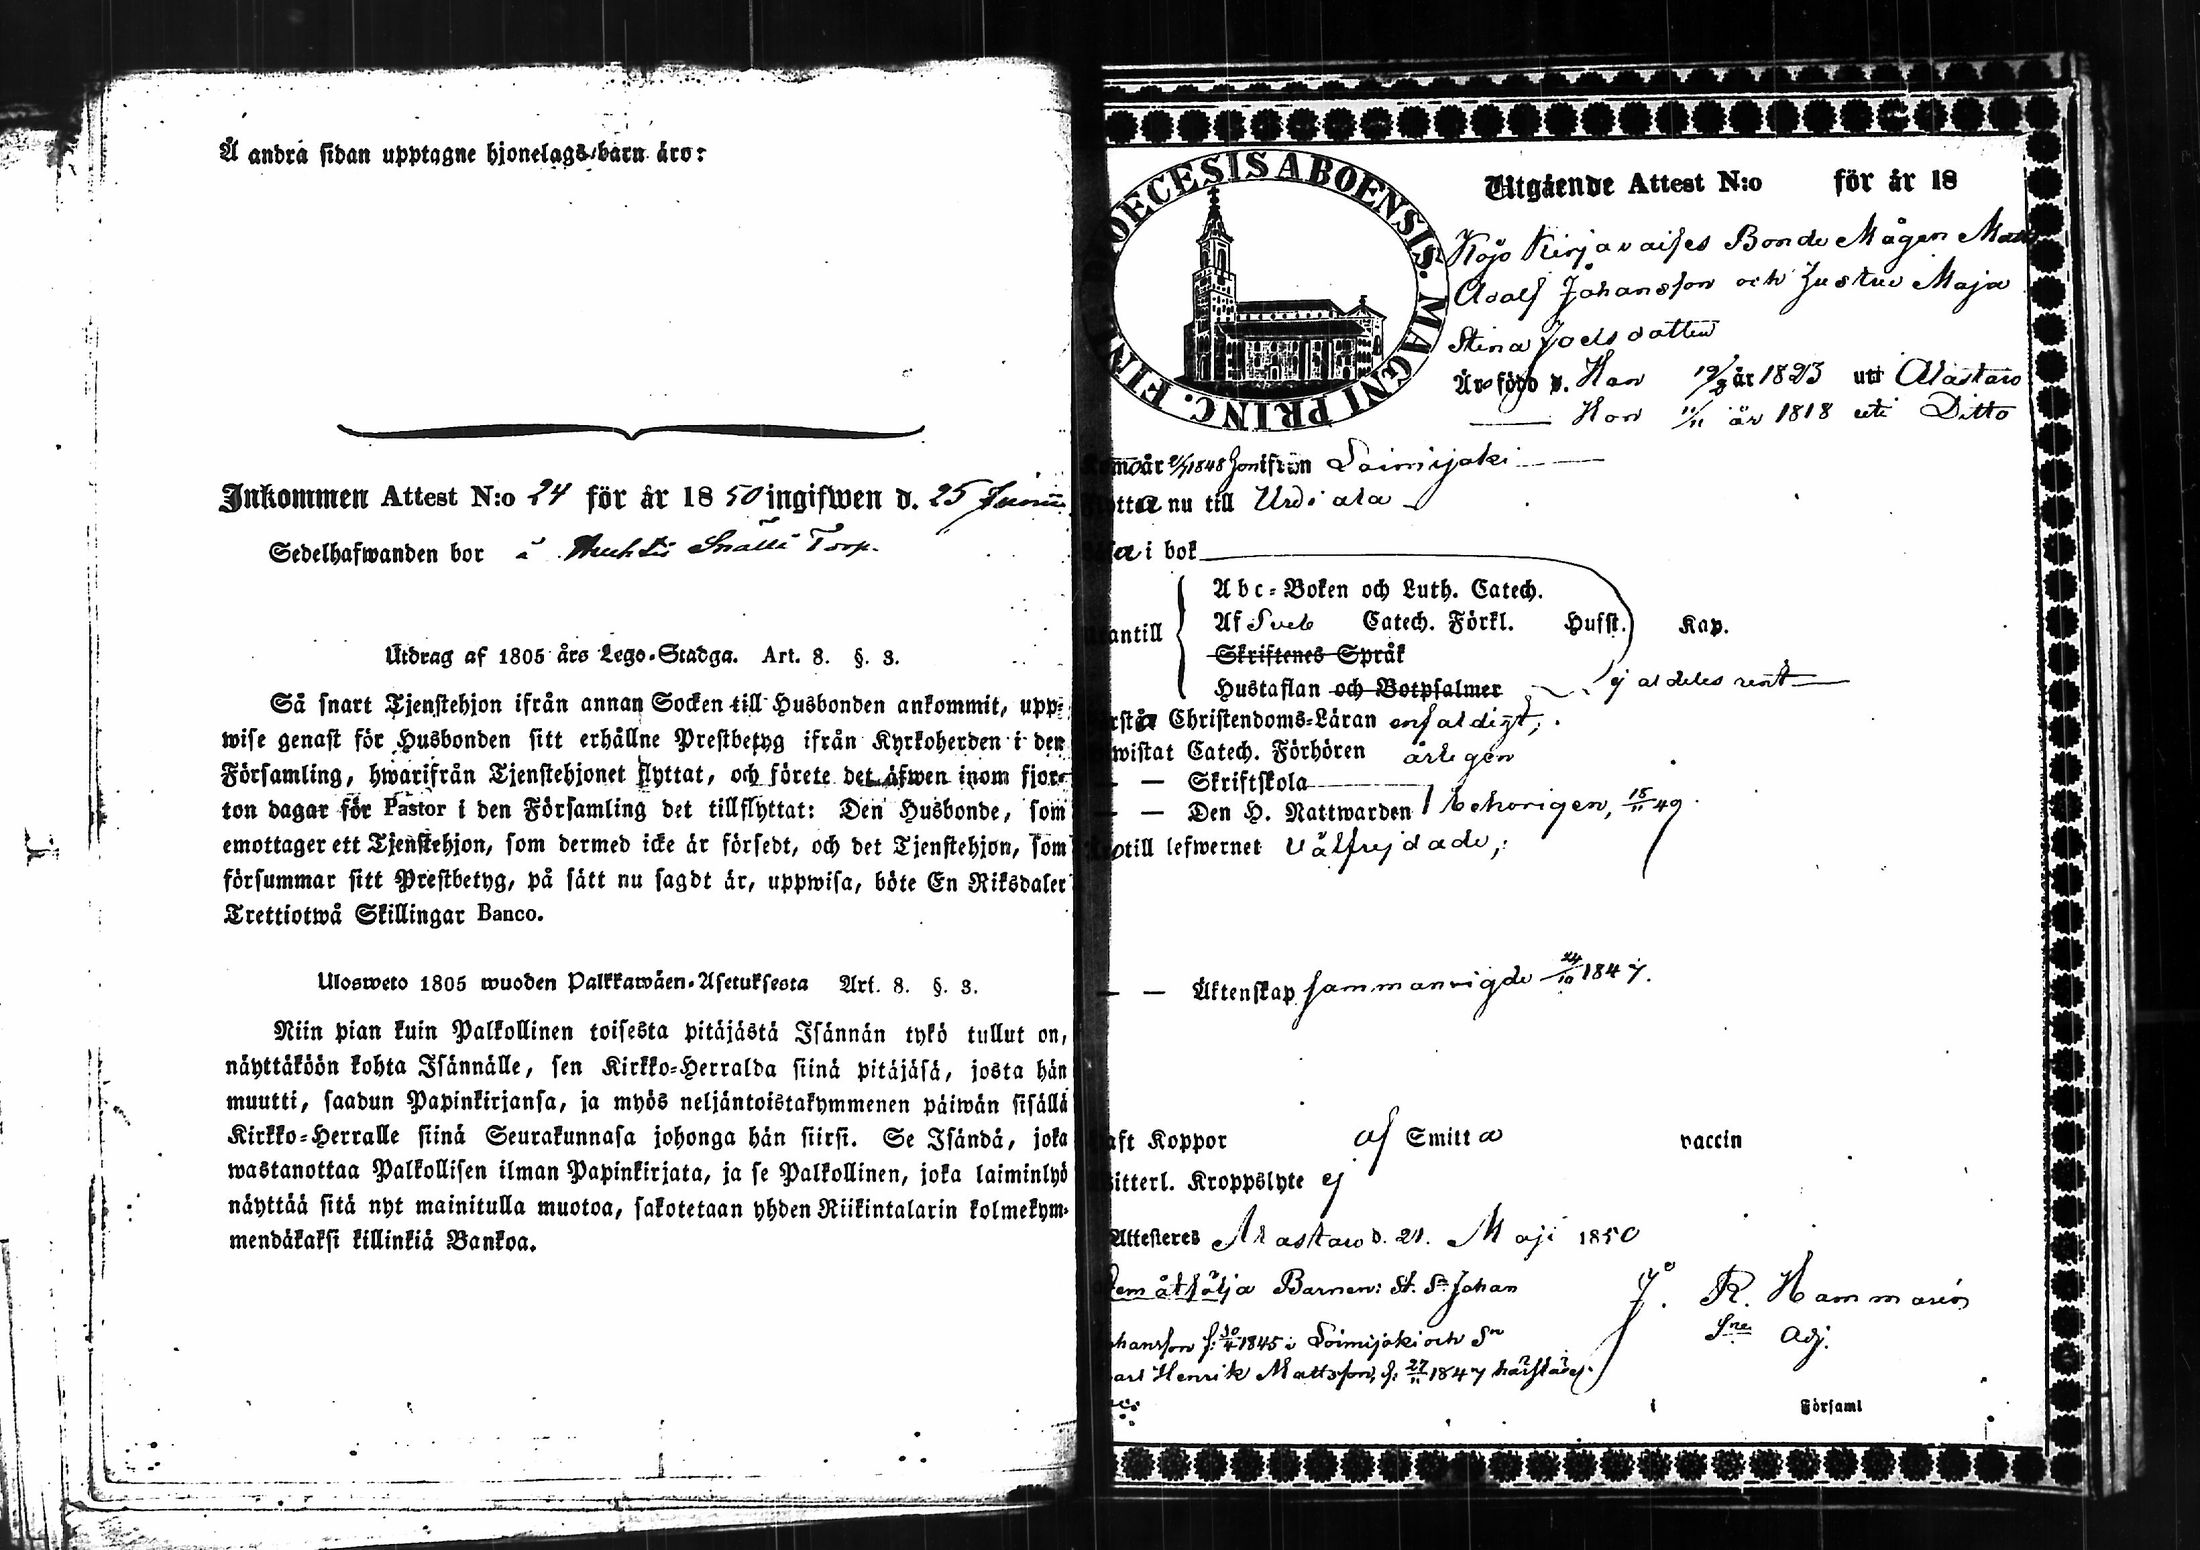 Å andra sidan upptagne hjonelags-barn äro:
Inkommen Attest N:o 24 för år 1850 ingifwen d. 25 Junii
Sedelhafwanden bor å Torp.
Utdrag af 1805 års Lego-Stadga. Art. 8. §. 3.
Så snart Tjenstehjon ifrån annan Socken till Husbonden ankommit, upp-
wise genast för Husbonden sitt erhållne Prestbetyg ifrån Kyrkoherden i den
Församling, hwarifrån Tjenstehjonet flyttat, och förete det äfwen inom fjor-
ton dagar för Pastor i den Församling det tillflyttat: Den Husbonde, som
emottager ett Tjenstehjon, som dermed icke är försedt, och det Tjenstehjon, som
försummar sitt Prestbetyg, på sätt nu sagdt är, uppwisa, böte En Riksdaler
Trettiotwå Skillingar Banco.
Ulosweto 1805 wuoden Palkkawäen-Asetuksesta Art. 8. §. 3.
Niin pian kuin Palkollinen toisesta pitäjästä Isännän tykö tullut on,
näyttäköön kohta Isännälle, sen Kirkko-Herralda siinä pitäjäsä, josta hän
muutti, saadun Papinkirjansa, ja myös neljäntoistakymmenen päiwän sisällä
Kirkko-Herralle siinä Seurakunnasa johonga hän siirsi. Se Isändä, joka
wastanottaa Palkollisen ilman Papinkirjata, ja se Palkollinen, joka laiminlyö
näyttää sitä nyt mainitulla muotoa, sakotetaan yhden Riikintalarin kolmekym-
mendäkaksi killinkiä Bankoa.
DIOECESIS ABOENSIS. MAGNI PRINC. FIN
Utgående Attest N:o för år 18
Köjo Kirjavaises Bonde Mågen Matts
Adolf Johansson och Hustru Maja
Stina Joelsdotter
Äro född d. Han 19/8 år 1823 uti Alastaro
Hon 11/11 år 1818 uti Ditto
år 1848 ifrån Loimijoki
nu till Urdiala
i bok
antill
Abc-Boken och Luth. Catech.
Af Sveb Catech. Förkl. Hufst. Kap.
Skriftenes Språk
Hustaflan och Botpsalmer ej aldeles rent
Christendoms-Läran enfaldigt;
wistat Catech. Förhören årligen
— — Skriftskola
— — Den H. Nattwarden behörigen, 18/11 49.
till lefwernet välfrejdade;
— — Äktenskap sammanvigde 24/10 1847.
aft Koppor af Smitta vaccin
itterl. Kroppslyte ej
Attesteres Alastaro d. 21. Maji 1850
Dem åtfölja Barnen: St. Sn Johan
hansson f: 30/4 1845 i Loimijoki och Sn
arl Henrik Mattsson, f: 27/11 1847 härstädes.
J. R. Hammarén
Adj.
i Församl